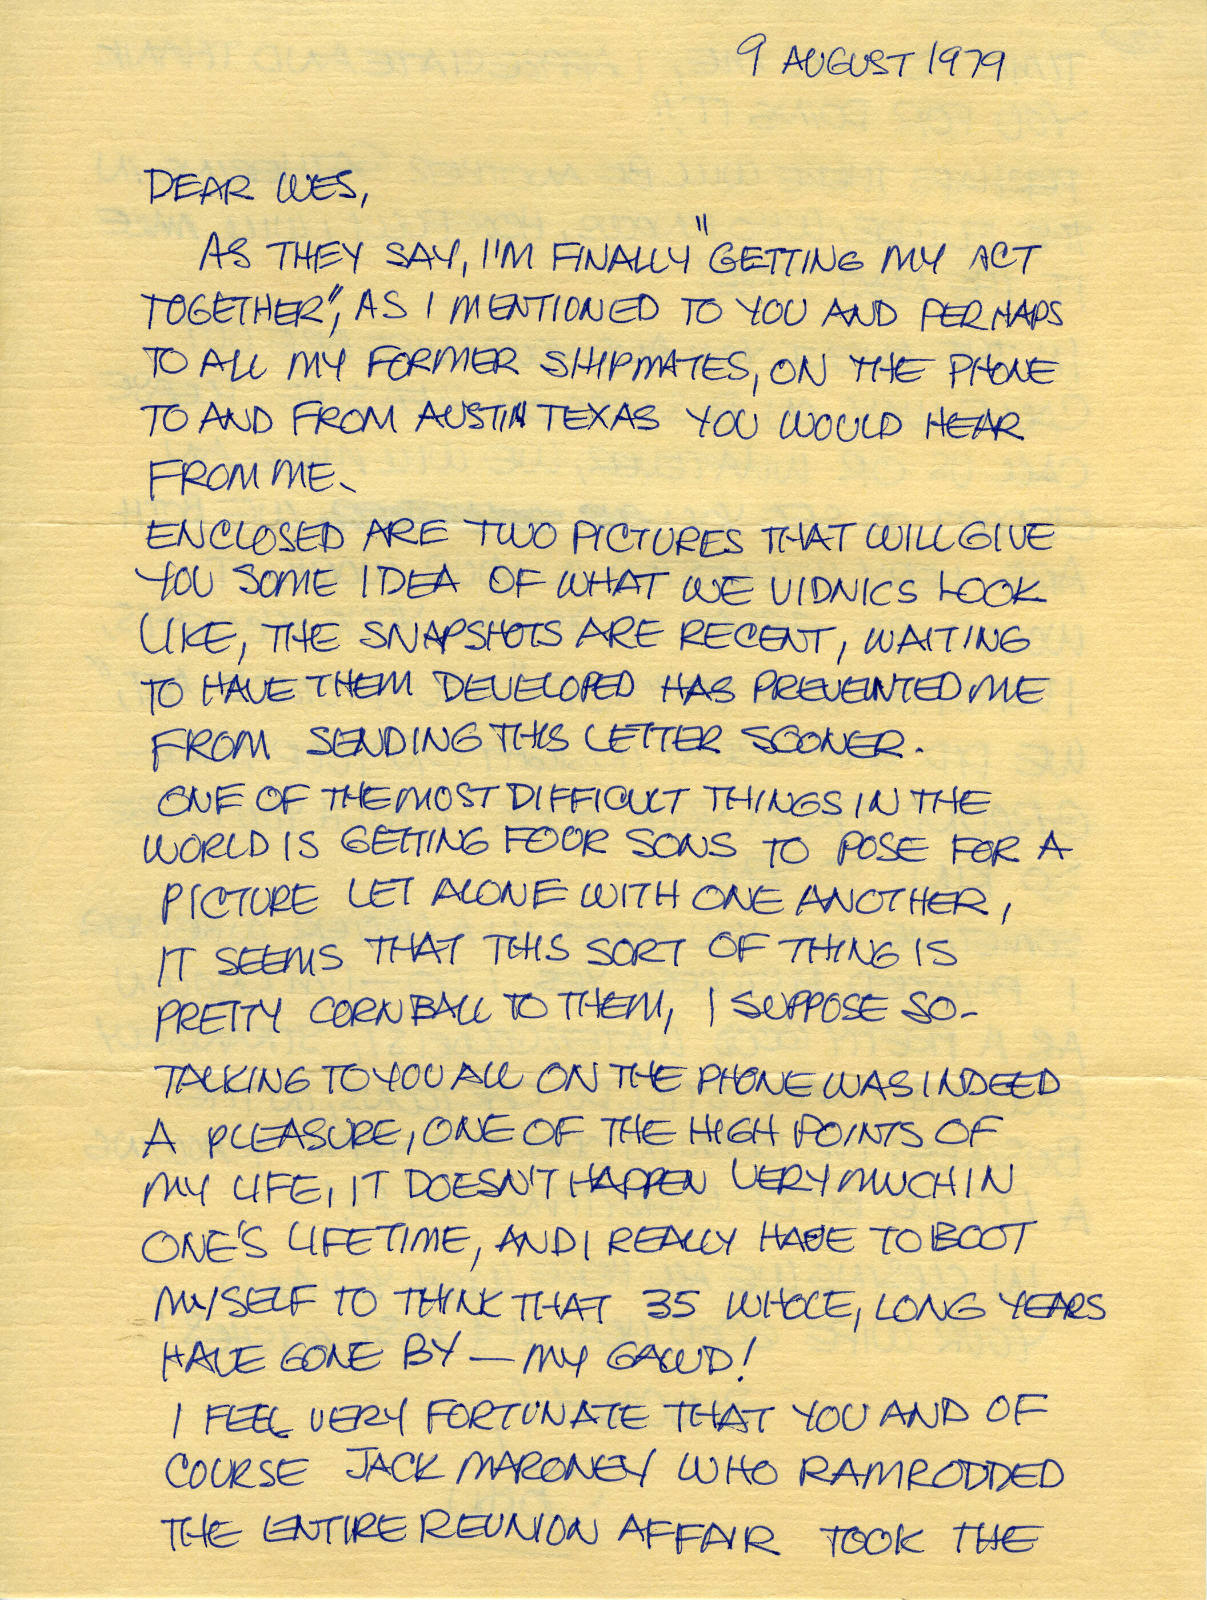 9 AUGUST 1979
DEAR WES,
AS THEY SAY, I'M FINALLY "GETTING MY ACT
TOGETHER", AS I MENTIONED TO YOU AND PERHAPS
TO ALL MY FORMER SHIPMATES, ON THE PHONE
TO AND FROM AUSTIN TEXAS YOU WOULD HEAR
FROM ME.
ENCLOSED ARE TWO PICTURES THAT WILL GIVE
YOU SOME IDEA OF WHAT WE VIDNICS LOOK
LIKE, THE SNAPSHOTS ARE RECENT, WAITING
TO HAVE THEM DEVELOPED HAS PREVEINTED ME
FROM SENDING THIS LETTER SOONER.
ONE OF THE MOST DIFFICULT THINGS IN THE
WORLD IS GETTING FOUR SONS TO POSE FOR A
PICTURE LET ALONE WITH ONE ANOTHER,
IT SEEMS THAT THIS SORT OF THING IS
PRETTY CORNBALL TO THEM, I SUPPOSE SO-
TALKING TO YOU ALL ON THE PHONE WAS INDEED
A PLEASURE, ONE OF THE HIGH POINTS OF
MY LIFE, IT DOESN'T HAPPEN VERY MUCH IN
ONE'S LIFETIME, AND I REALLY HAVE TO BOOT
MYSELF TO THINK THAT 35 WHOLE, LONG YEARS
HAVE GONE BY — MY GAWD!
I FEEL VERY FORTUNATE THAT YOU AND OF
COURSE JACK MARONEY WHO RAMRODDED
THE ENTIRE REUNION AFFAIR TOOK THE